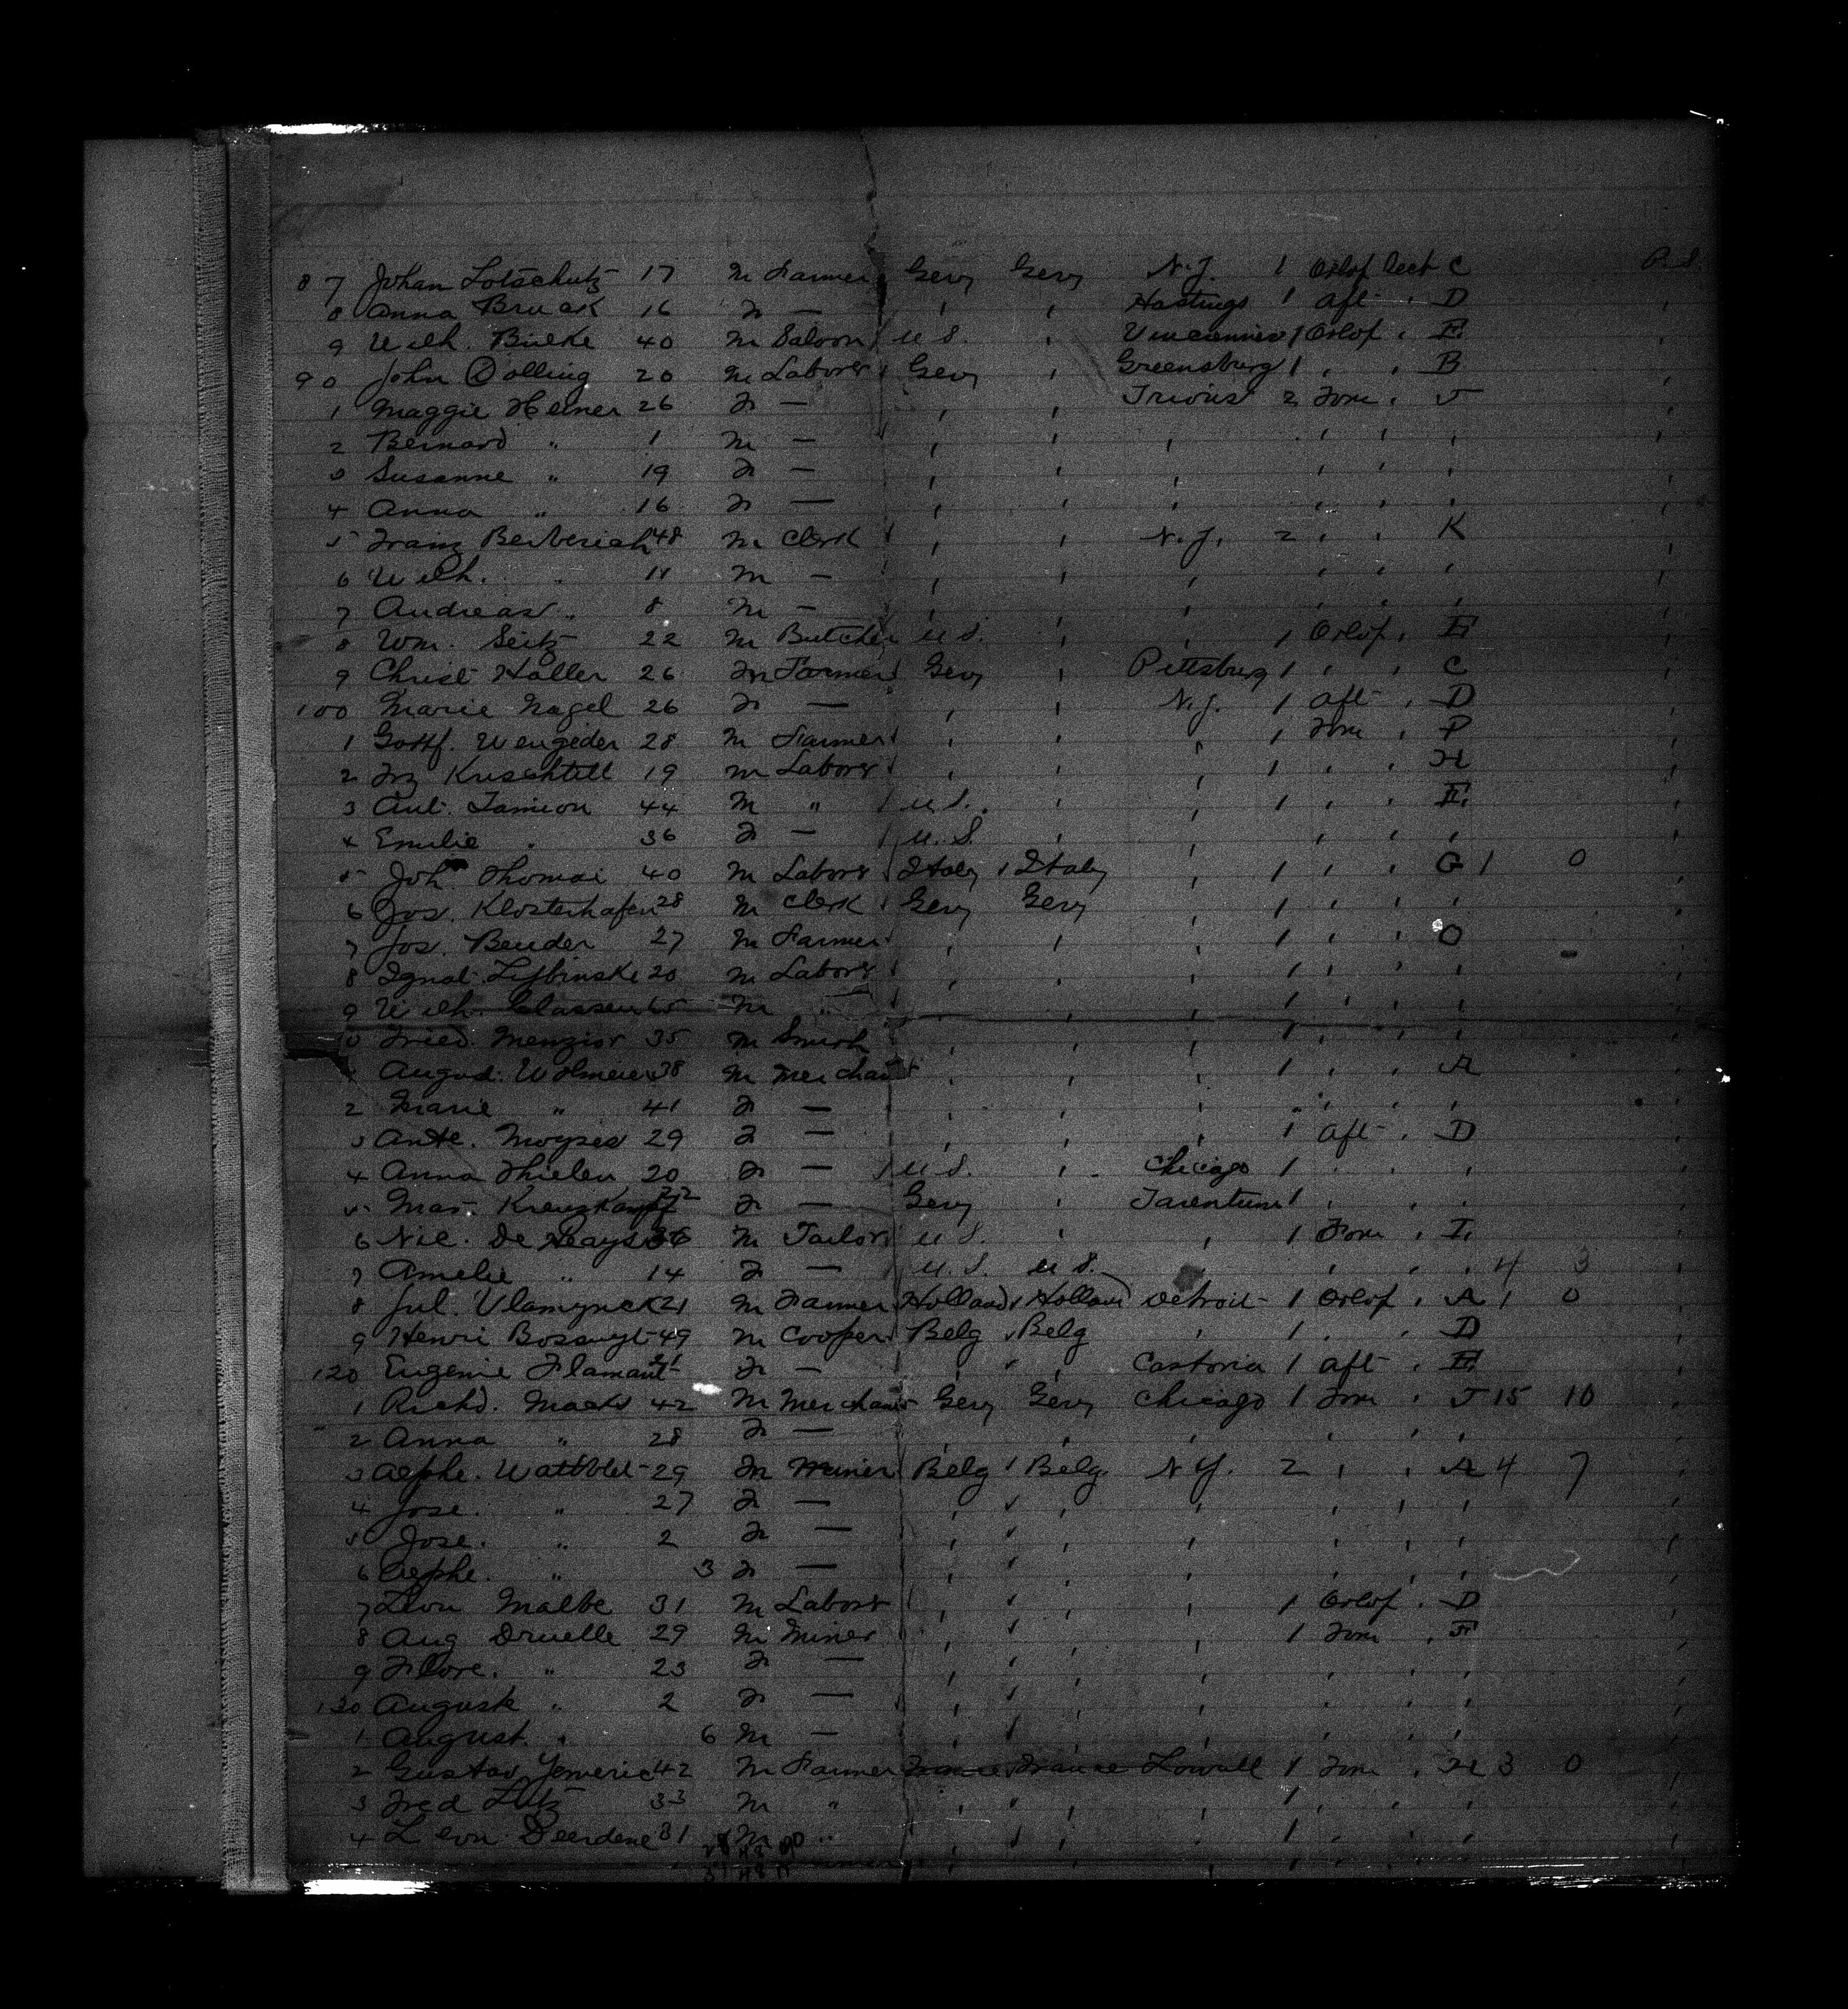 87 Johan Lotschutz 17 M Farmer Gery Gery N.J. 1 Orlof Deck C P.S.
8 Anna Bruck 16 F — , , Hastings 1 Aft , D ,
9 Wilh. Bielke 40 M Saloon / U S. , Vincennes 1 Orlof , E ,
90 John Dolling 20 M Laborer / Gery , Greensburg 1 , , B ,
1 Maggie Heiner 26 F — , , 2 For , J ,
2 Bernard " 1 M — , , , , , , ,
3 Susanne " 19 F — , , , , , , ,
4 Anna " 16 F — , , , , , , ,
5 Franz Berberich 48 M Clerk / , , N.J. 2 , , K ,
6 Wilh. " 11 M — , , , , , , ,
7 Andreas " 8 M — , , , , , , ,
8 Wm. Seitz 22 M Butcher U S. , , 1 Orlof , E ,
9 Christ Haller 26 M Farmer Gery , Pittsburg 1 , , C ,
100 Marie Nagel 26 F — , , N.J. 1 Aft , D ,
1 Gottf. Wengeder 28 M Farmer / , , , 1 For , P ,
2 Frz Kuschtell 19 M Laborer / , , , 1 , , H ,
3 Ant. Tamion 44 M " / U S. , , 1 , , E ,
4 Emilie " 36 F — / U. S. , , , , , ,
5 Joh. Thomai 40 M Laborer Italy / Italy , 1 , , G 1 0 ,
6 Jos. Klosterhafen 28 M Clerk / Gery Gery , 1 , , , ,
7 Jos. Bender 27 M Farmer / , , , 1 , , O ,
8 Ignat. 20 M Laborer / , , , 1 , , , ,
9 Wilh. Classen 65 M " / , , , 1 , , , ,
0 Fried. Menzior 35 M Smith , , , 1 , , , ,
August. Wolmeier 38 M Merchant , , , 1 , , A ,
2 Marie " 41 F — , , , , , , ,
3 Ante. Moyses 29 F — , , , 1 Aft , D ,
4 Anna Thielen 20 F — / U S. , Chicago 1 , , , ,
5 Mar. Kreuzkampf 22 F — Gery , Tarentum 1 , , , ,
6 Nic. De 36 M Tailor U S. , , 1 For , I ,
7 Amelie " 14 F — / U. S. U S. , , , , 4 3 ,
8 Jul. Vlamynck 21 M Farmer Holland / Holland Detroit 1 Orlof , A 1 0 ,
9 Henri Bossuyt 49 M Cooper Belg Belg , 1 , , D ,
120 Eugenie Flamant 21 F — , , Castoria 1 Aft , E ,
1 Richd. Macks 42 M Merchant Gery Gery Chicago 1 For , J 15 10 ,
2 Anna " 28 F — , , , , , , ,
3 Alphe. Wattblet 29 M Miner Belg / Belg. N Y. 2 , , A 4 7 ,
4 Jose. " 27 F — , , , , , , ,
5 Jose. " 2 F — , , , , , , ,
6 Alphe. " 3 F — , , , , , , ,
7 Leon Malbe 31 M Laborer / , , , 1 Orlof , D ,
8 Aug Druelle 29 M Miner , , , 1 For , F ,
9 Flore. " 23 F — , , , , , , ,
130 Auguste " 2 F — , , , , , , ,
1 August. " 6 M — , , , , , , ,
2 Gustav 42 M Farmer France France Lowell 1 For , H 3 0 ,
3 Fred Lutz 33 M " , , , 1 , , , ,
4 Leon Deerdene 31 M " , , , 1 , , , ,